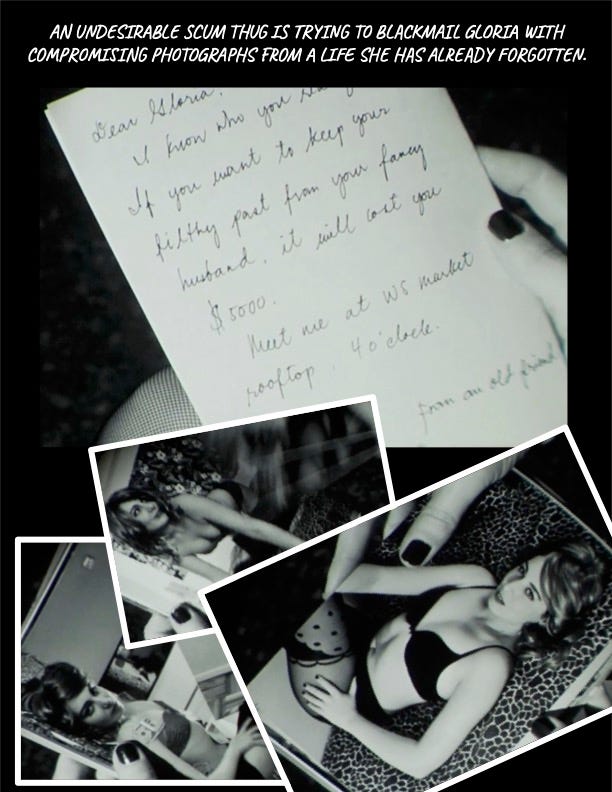 AN UNDESIRABLE SCUM THUG IS TRYING TO BLACKMAIL GLORIA WITH
COMPROMISING PHOTOGRAPHS FROM A LIFE SHE HAS ALREADY FORGOTTEN.
Dear Gloria.
I know who you
If you want to keep your
filthy past from your fancy
husband, it will cost you
$5000.
Meet me at WS market
rooftop, 4 o'clock.
From an old friend